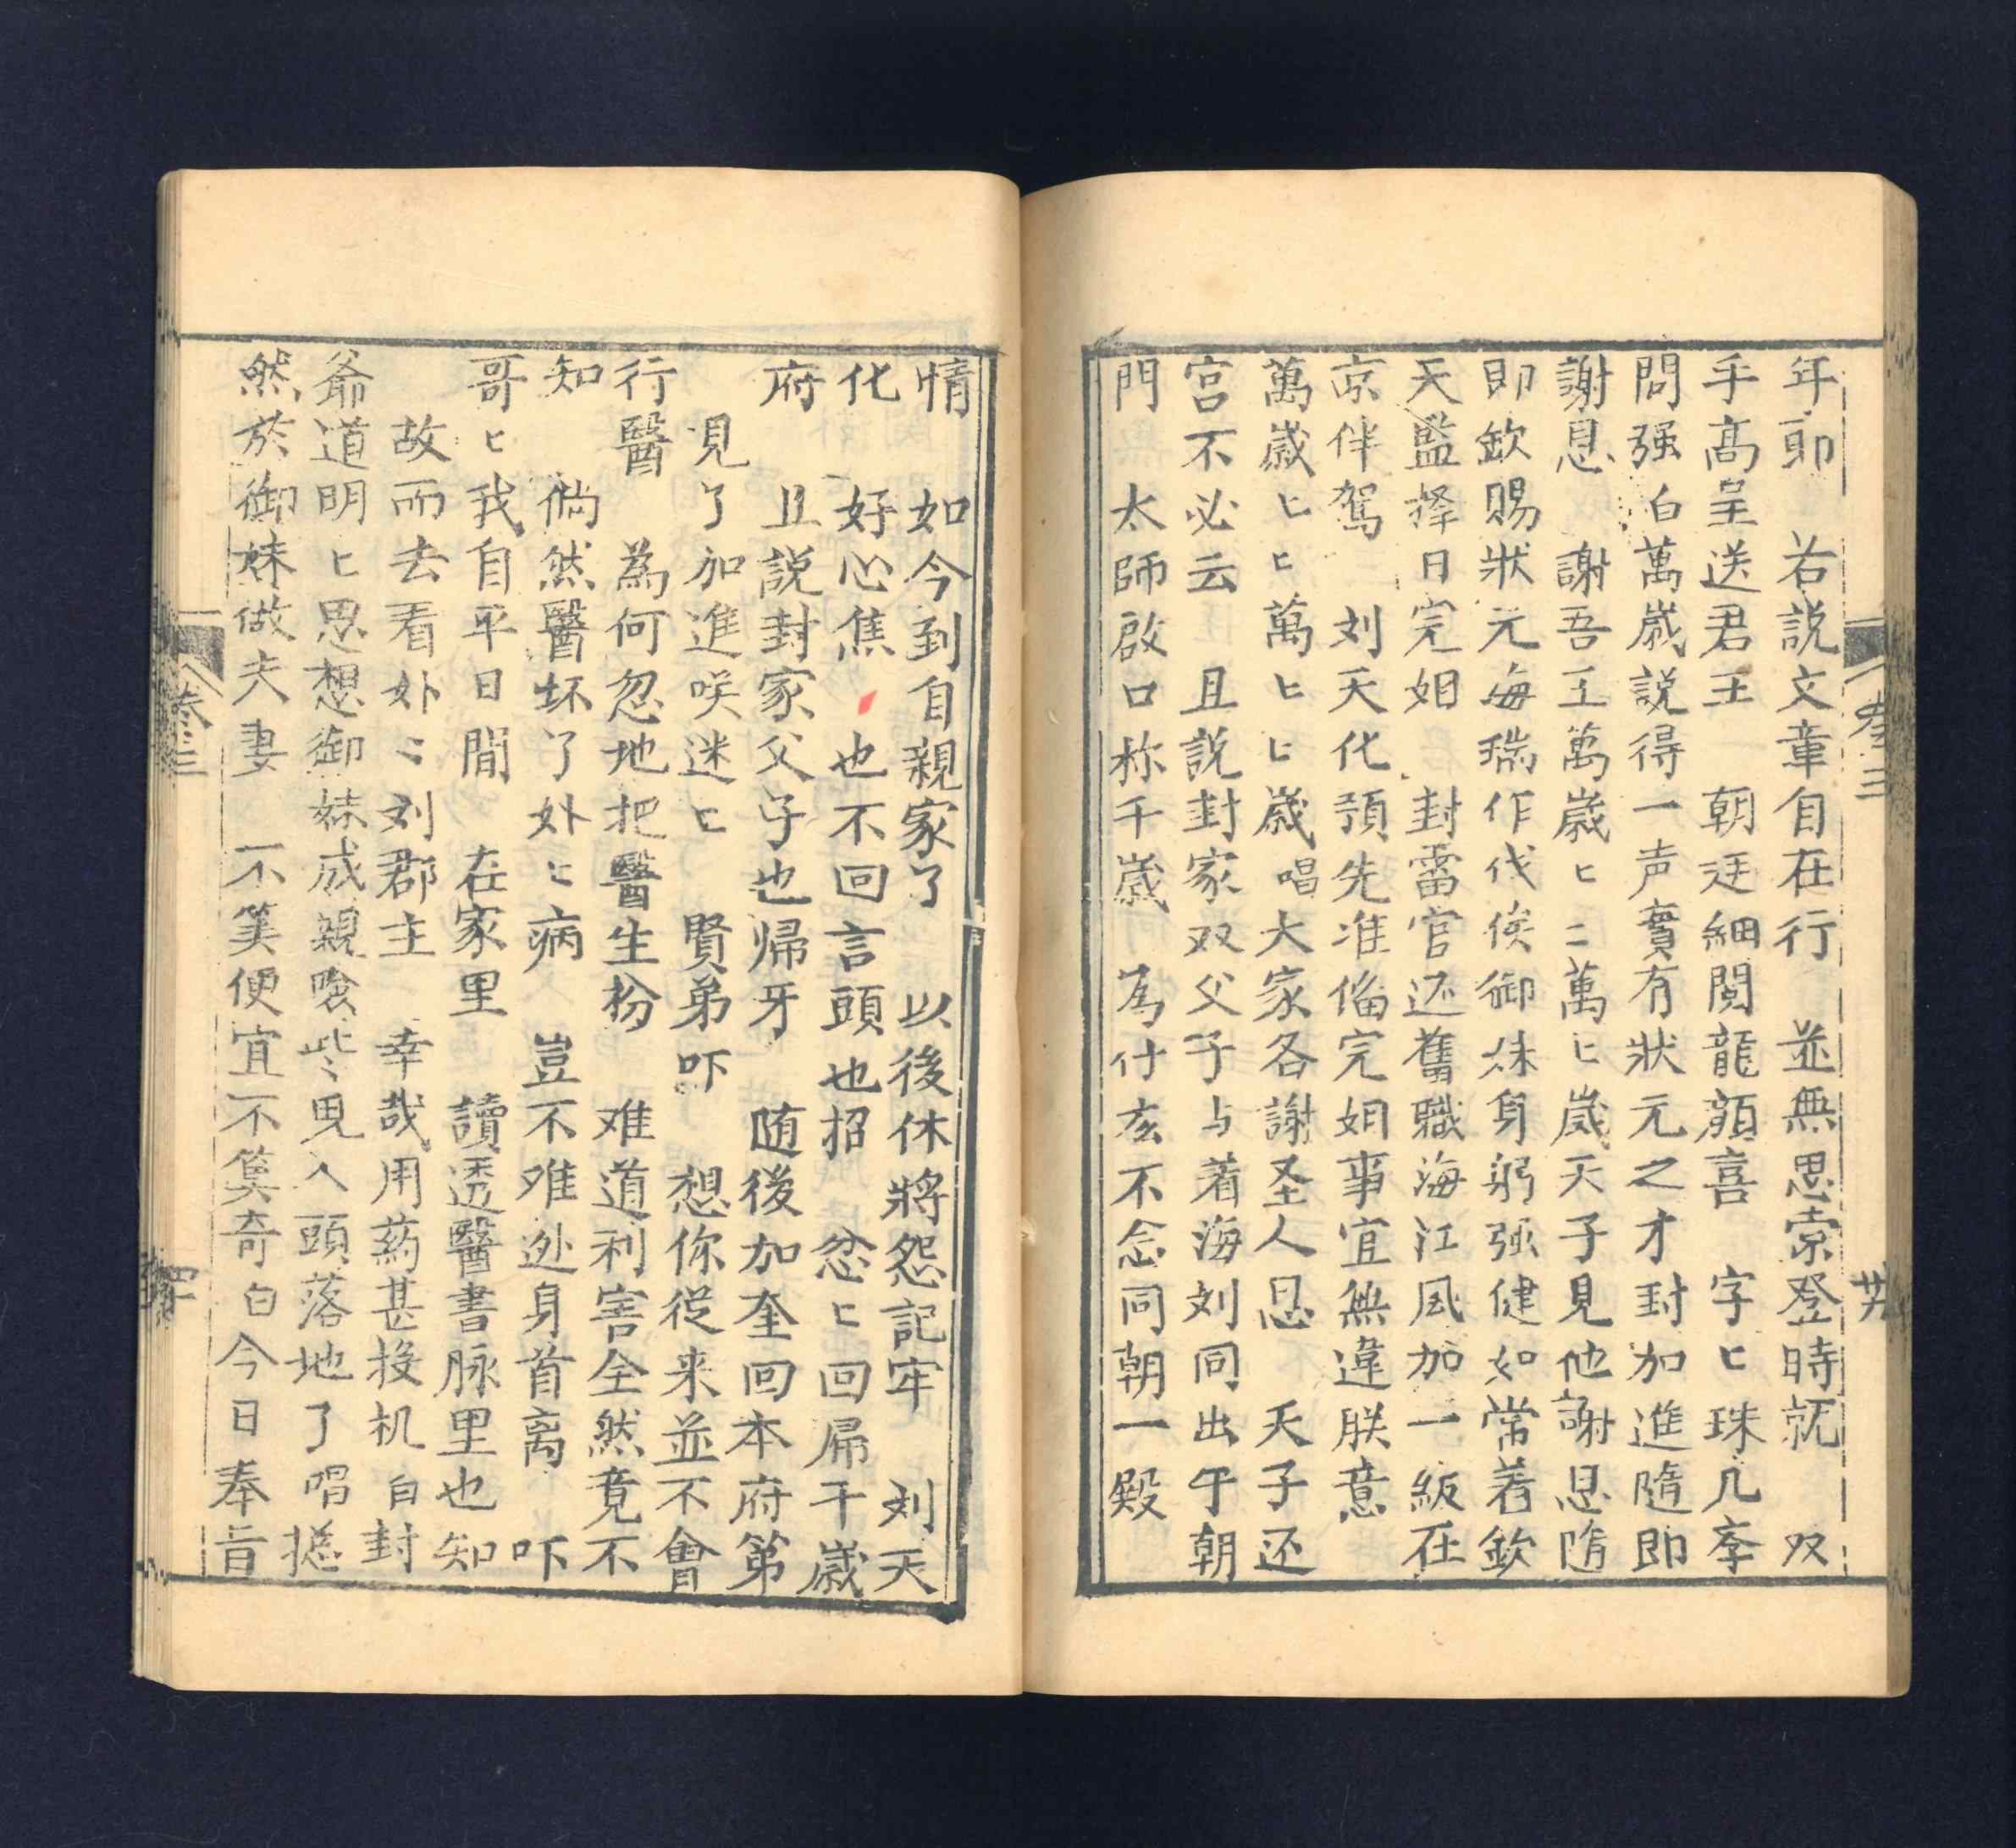 年卯　若説文章自在行　並無思索登時就　双
手髙呈送君王　朝廷細閱龍顔喜　字匕珠几李
問强白萬嵗説得一声實有狀元之才封加進隨即
謝恩　謝吾王萬嵗匕二萬匕嵗天子見他謝恩隨
即欽賜狀元海瑞作伐俟御妹身躬强健如常着欽
天監擇日完姻　封雷官还舊職海江風加一級在
京伴駕　刘天化預先准俻完姻事宜無違朕意
萬嵗匕匕萬匕匕嵗唱大家各謝圣人恩　天子还
宮不必云　且説封家双父子与着海刘同出午朝
門　太師啟口称千嵗　為什庅不念同朝一殿
卷三
廿九
情　如今到自親家了　以後休將怨記牢　刘天
化　好心焦　也不回言頭也招　忿匕回歸千嵗
府　且説封家父子也帰牙　随後加奎回本府第
見了加進咲迷匕　賢弟吓　想你従来並不會
行醫　為何忽地把醫生扮　难道利害全然竟不
知　倘然醫坏了妣匕病　豈不难迯身首离　吓
哥匕我自平日間　在家里　讀透醫書脉里也知
故而去看妣匕刘郡主　幸哉用葯甚投机白封
爺道明匕思想御妹成親喰些鬼人頭落地了唱搃
然於御妹做夫妻　不筭便宜不筭奇白今日奉旨
卷三
四十